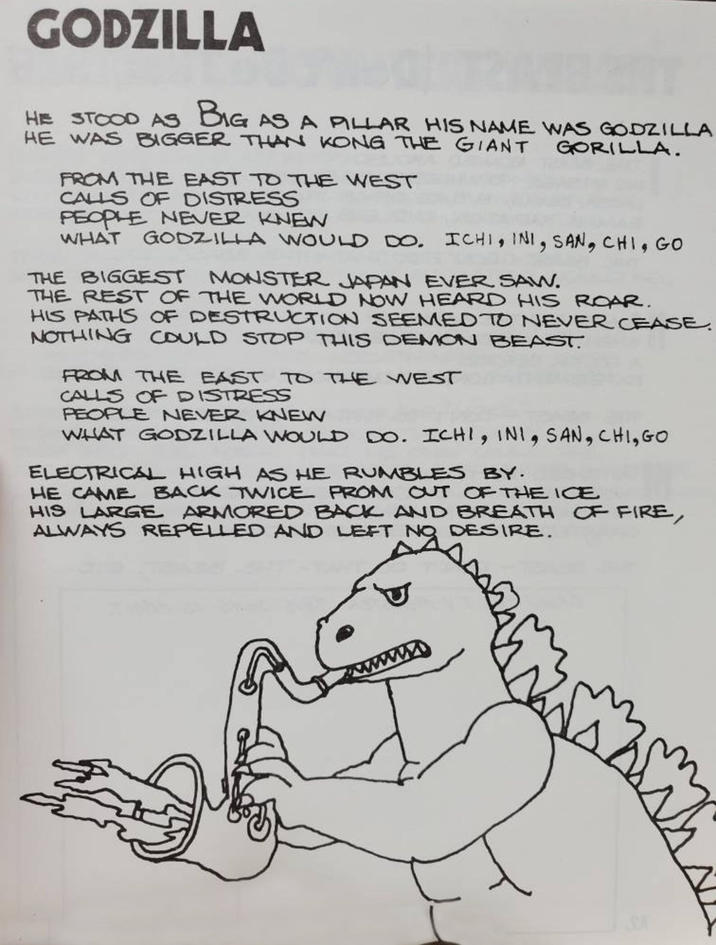 GODZILLA
HE STOOD AS BIG AS A PILLAR HIS NAME WAS GODZILLA
HE WAS BIGGER THAN KONG THE GIANT GORILLA.
FROM THE EAST TO THE WEST
CALLS OF DISTRESS
PEOPLE NEVER KNEW
WHAT GODZILLA WOULD DO. ICHI, INI, SAN, CHI, GO
THE BIGGEST MONSTER JAPAN EVER SAW.
THE REST OF THE WORLD NOW HEARD HIS ROAR.
HIS PATHS OF DESTRUCTION SEEMED TO NEVER CEASE.
NOTHING COULD STOP THIS DEMON BEAST.
FROM THE EAST TO THE WEST
CALLS OF DISTRESS
PEOPLE NEVER KNEW
WHAT GODZILLA WOULD DO. ICHI, INI, SAN, CHI, GO
ELECTRICAL HIGH AS HE RUMBLES BY.
HE CAME BACK TWICE FROM OUT OF THE ICE
HIS LARGE ARMORED BACK AND BREATH OF FIRE,
ALWAYS REPELLED AND LEFT NO DESIRE.